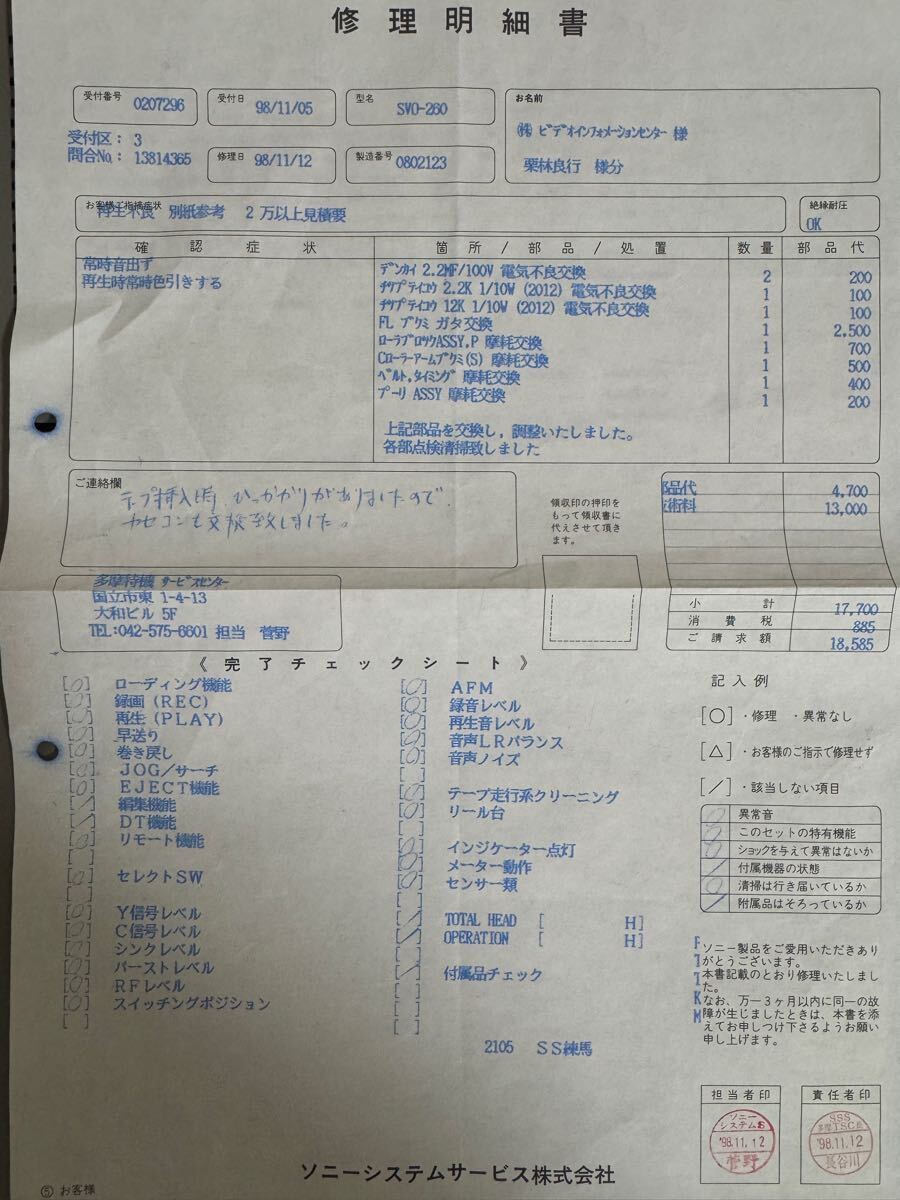 修理明細書
受付番号 0207296
受付日 98/11/05
型名 SVO-260
お名前
㈱ ビデオインフォメーションセンター 様
栗林良行 様分
受付区: 3
問合No.: 13814365
修理日 98/11/12
製造番号 0802123
お客様ご指摘症状
再生不良 別紙参考 2万以上見積要
絶縁耐圧
OK
確認症状 箇所/部品/処置 数量 部品代
常時音出ず
再生時常時色引きする
デンカイ 2.2MF/100V 電気不良交換 2 200
チツプテイコウ 2.2K 1/10W (2012) 電気不良交換 1 100
チツプテイコウ 12K 1/10W (2012) 電気不良交換 1 100
FL ブクミ ガタ交換 1 2,500
ローラブロックASSY,P 摩耗交換 1 700
Cローラーアームブクミ(S) 摩耗交換 1 500
ベルト,タイミング 摩耗交換 1 400
プーリ ASSY 摩耗交換 1 200
上記部品を交換し，調整いたしました。
各部点検清掃致しました
ご連絡欄
テープ挿入時、ひっかかりがありましたので、
カセコンも交換致しました。
領収印の押印を
もって領収書に
代えさせて頂き
ます。
部品代 4,700
技術料 13,000
小計 17,700
消費税 885
ご請求額 18,585
多摩特機 サービスセンター
国立市東 1-4-13
大和ビル 5F
TEL:042-575-6601 担当 菅野
《完了チェックシート》
[○] ローディング機能
[○] 録画(REC)
[○] 再生(PLAY)
[○] 早送り
[○] 巻き戻し
[○] JOG/サーチ
[○] EJECT機能
[/] 編集機能
[/] DT機能
[○] リモート機能
[ ]
[○] セレクトSW
[ ]
[○] Y信号レベル
[○] C信号レベル
[○] シンクレベル
[○] バーストレベル
[○] RFレベル
[○] スイッチングポジション
[ ]
[○] AFM
[○] 録音レベル
[○] 再生音レベル
[○] 音声LRバランス
[○] 音声ノイズ
[ ]
[○] テープ走行系クリーニング
[○] リール台
[ ]
[○] インジケーター点灯
[○] メーター動作
[○] センサー類
[ ]
[/] TOTAL HEAD [ H]
[/] OPERATION [ H]
[ ]
[/] 付属品チェック
[ ]
[ ]
[ ]
2105 SS練馬
記入例
[○]・修理 ・異常なし
[△]・お客様のご指示で修理せず
[/]・該当しない項目
○ 異常音
○ このセットの特有機能
○ ショックを与えて異常はないか
/ 付属機器の状態
○ 清掃は行き届いているか
/ 附属品はそろっているか
ソニー製品をご愛用いただきあり
がとうございます。
本書記載のとおり修理いたしまし
た。
なお、万一3ヶ月以内に同一の故
障が生じましたときは、本書を添
えてお申しつけ下さるようお願い
申し上げます。
担当者印
ソニー
システムS
'98.11.12
菅野
責任者印
SSS
多摩TSC長
'98.11.12
長谷川
ソニーシステムサービス株式会社
⑤ お客様